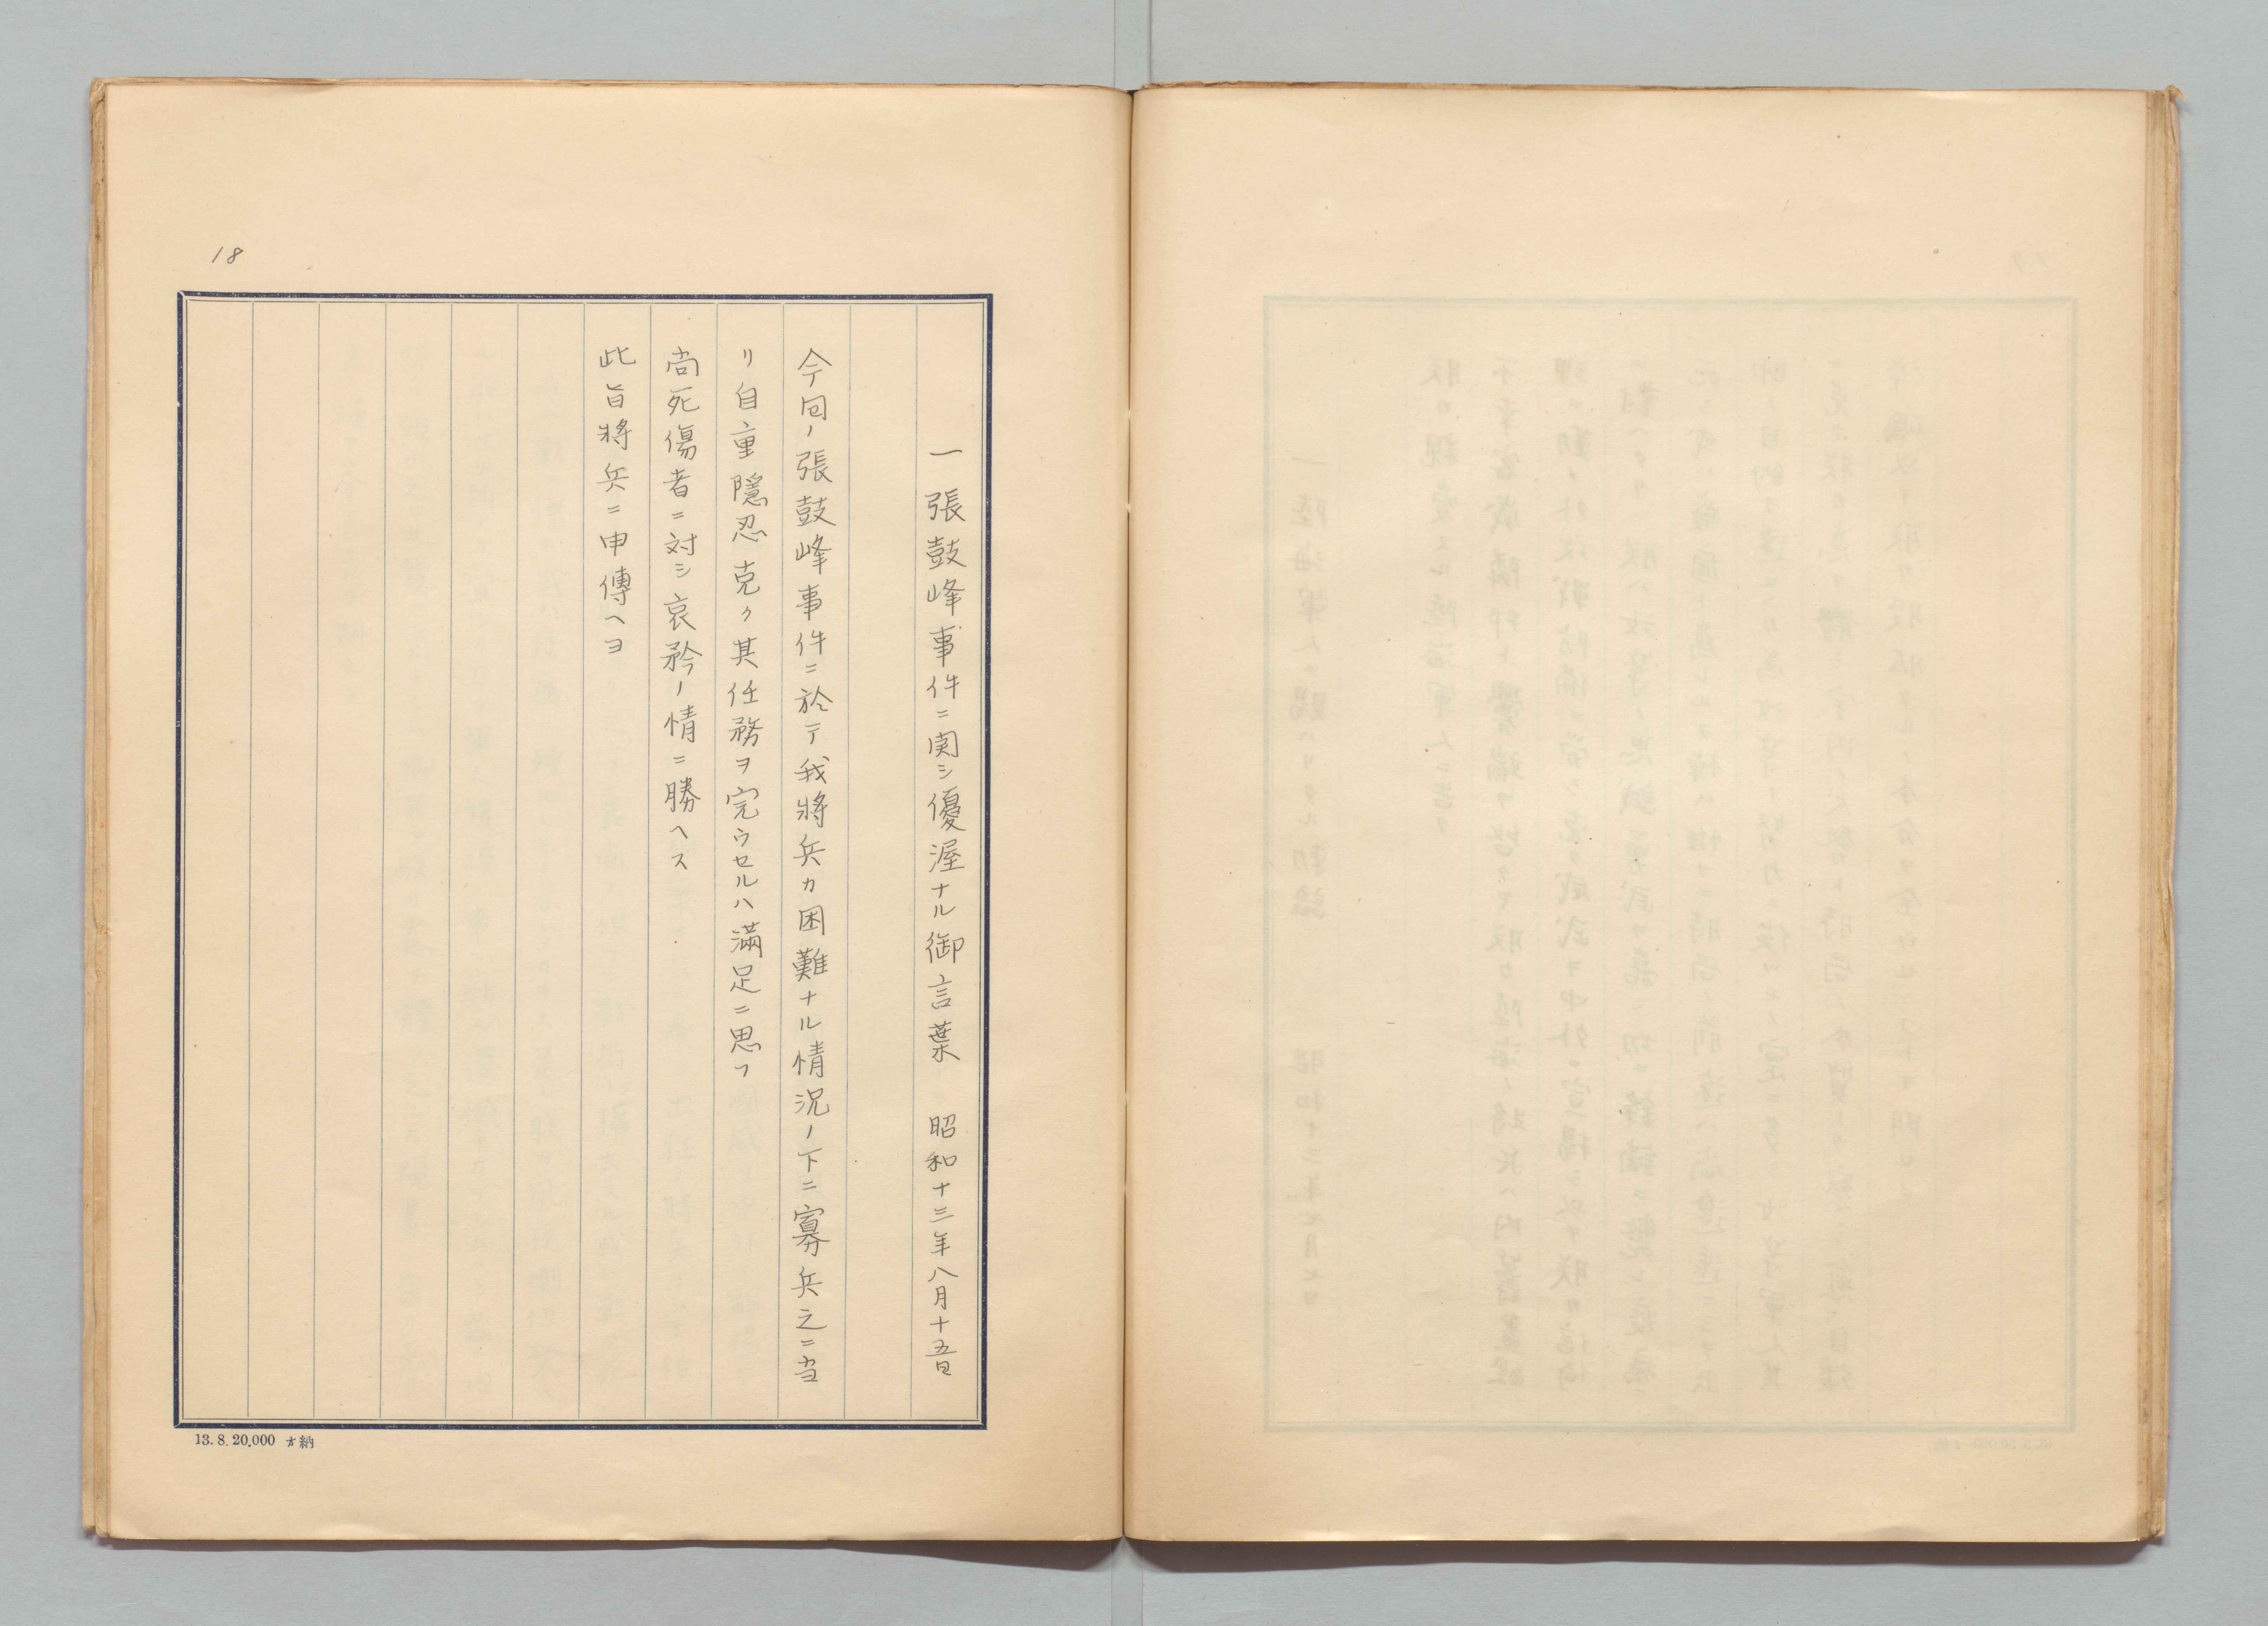 18
一張鼓峰事件ニ関シ優渥ナル御言葉 昭和十三年八月十五日
今回ノ張鼓峰事件ニ於テ我將兵カ困難ナル情況ノ下ニ寡兵之ニ当
リ自重隠忍克ク其任務ヲ完ウセルハ滿足ニ思フ
尚死傷者ニ対シ哀矜ノ情ニ勝ヘス
此旨將兵ニ申傳ヘヨ
13.8.20,000 納